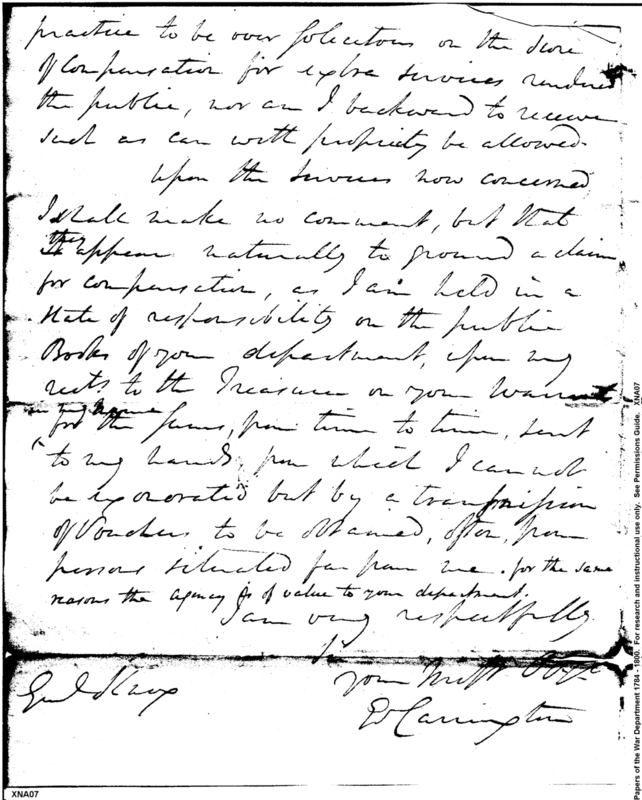 practice to be over solicitous on the score
of Compensation for extra services rendered
the public, nor am I backward to receive
such as can with propriety be allowed.
Upon the services now concerned
I shall make no comment, but that
they appear naturally to ground a claim
for compensation, as I am held in a
state of responsibility on the public
Books of your department, upon my
rects. to the Treasurer on your Warrants
in my name
for the sums, from time to time, sent
to my hands from which I cannot
be exonorated but by a transmission
of Vouchers to be obtained, often, from
persons situated far from me. for the same
reasons the agency is of value to your department.
I am very respectfully
Sr
your most Obt
Genl Knox
Ed Carrington
XNA07
Papers of the War Department 1784 - 1800. For research and instructional use only. See Permissions Guide. XNA07